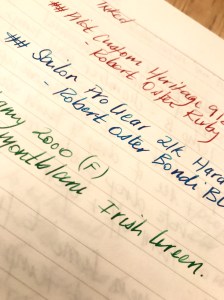 Inked
## Pilot Custom Heritage 91
- Robert Oster Kirby
## Sailor Pro Gear 21K Hard
- Robert Oster Bondi Bl
amy 2000 (F)
Montblanc Irish Green.